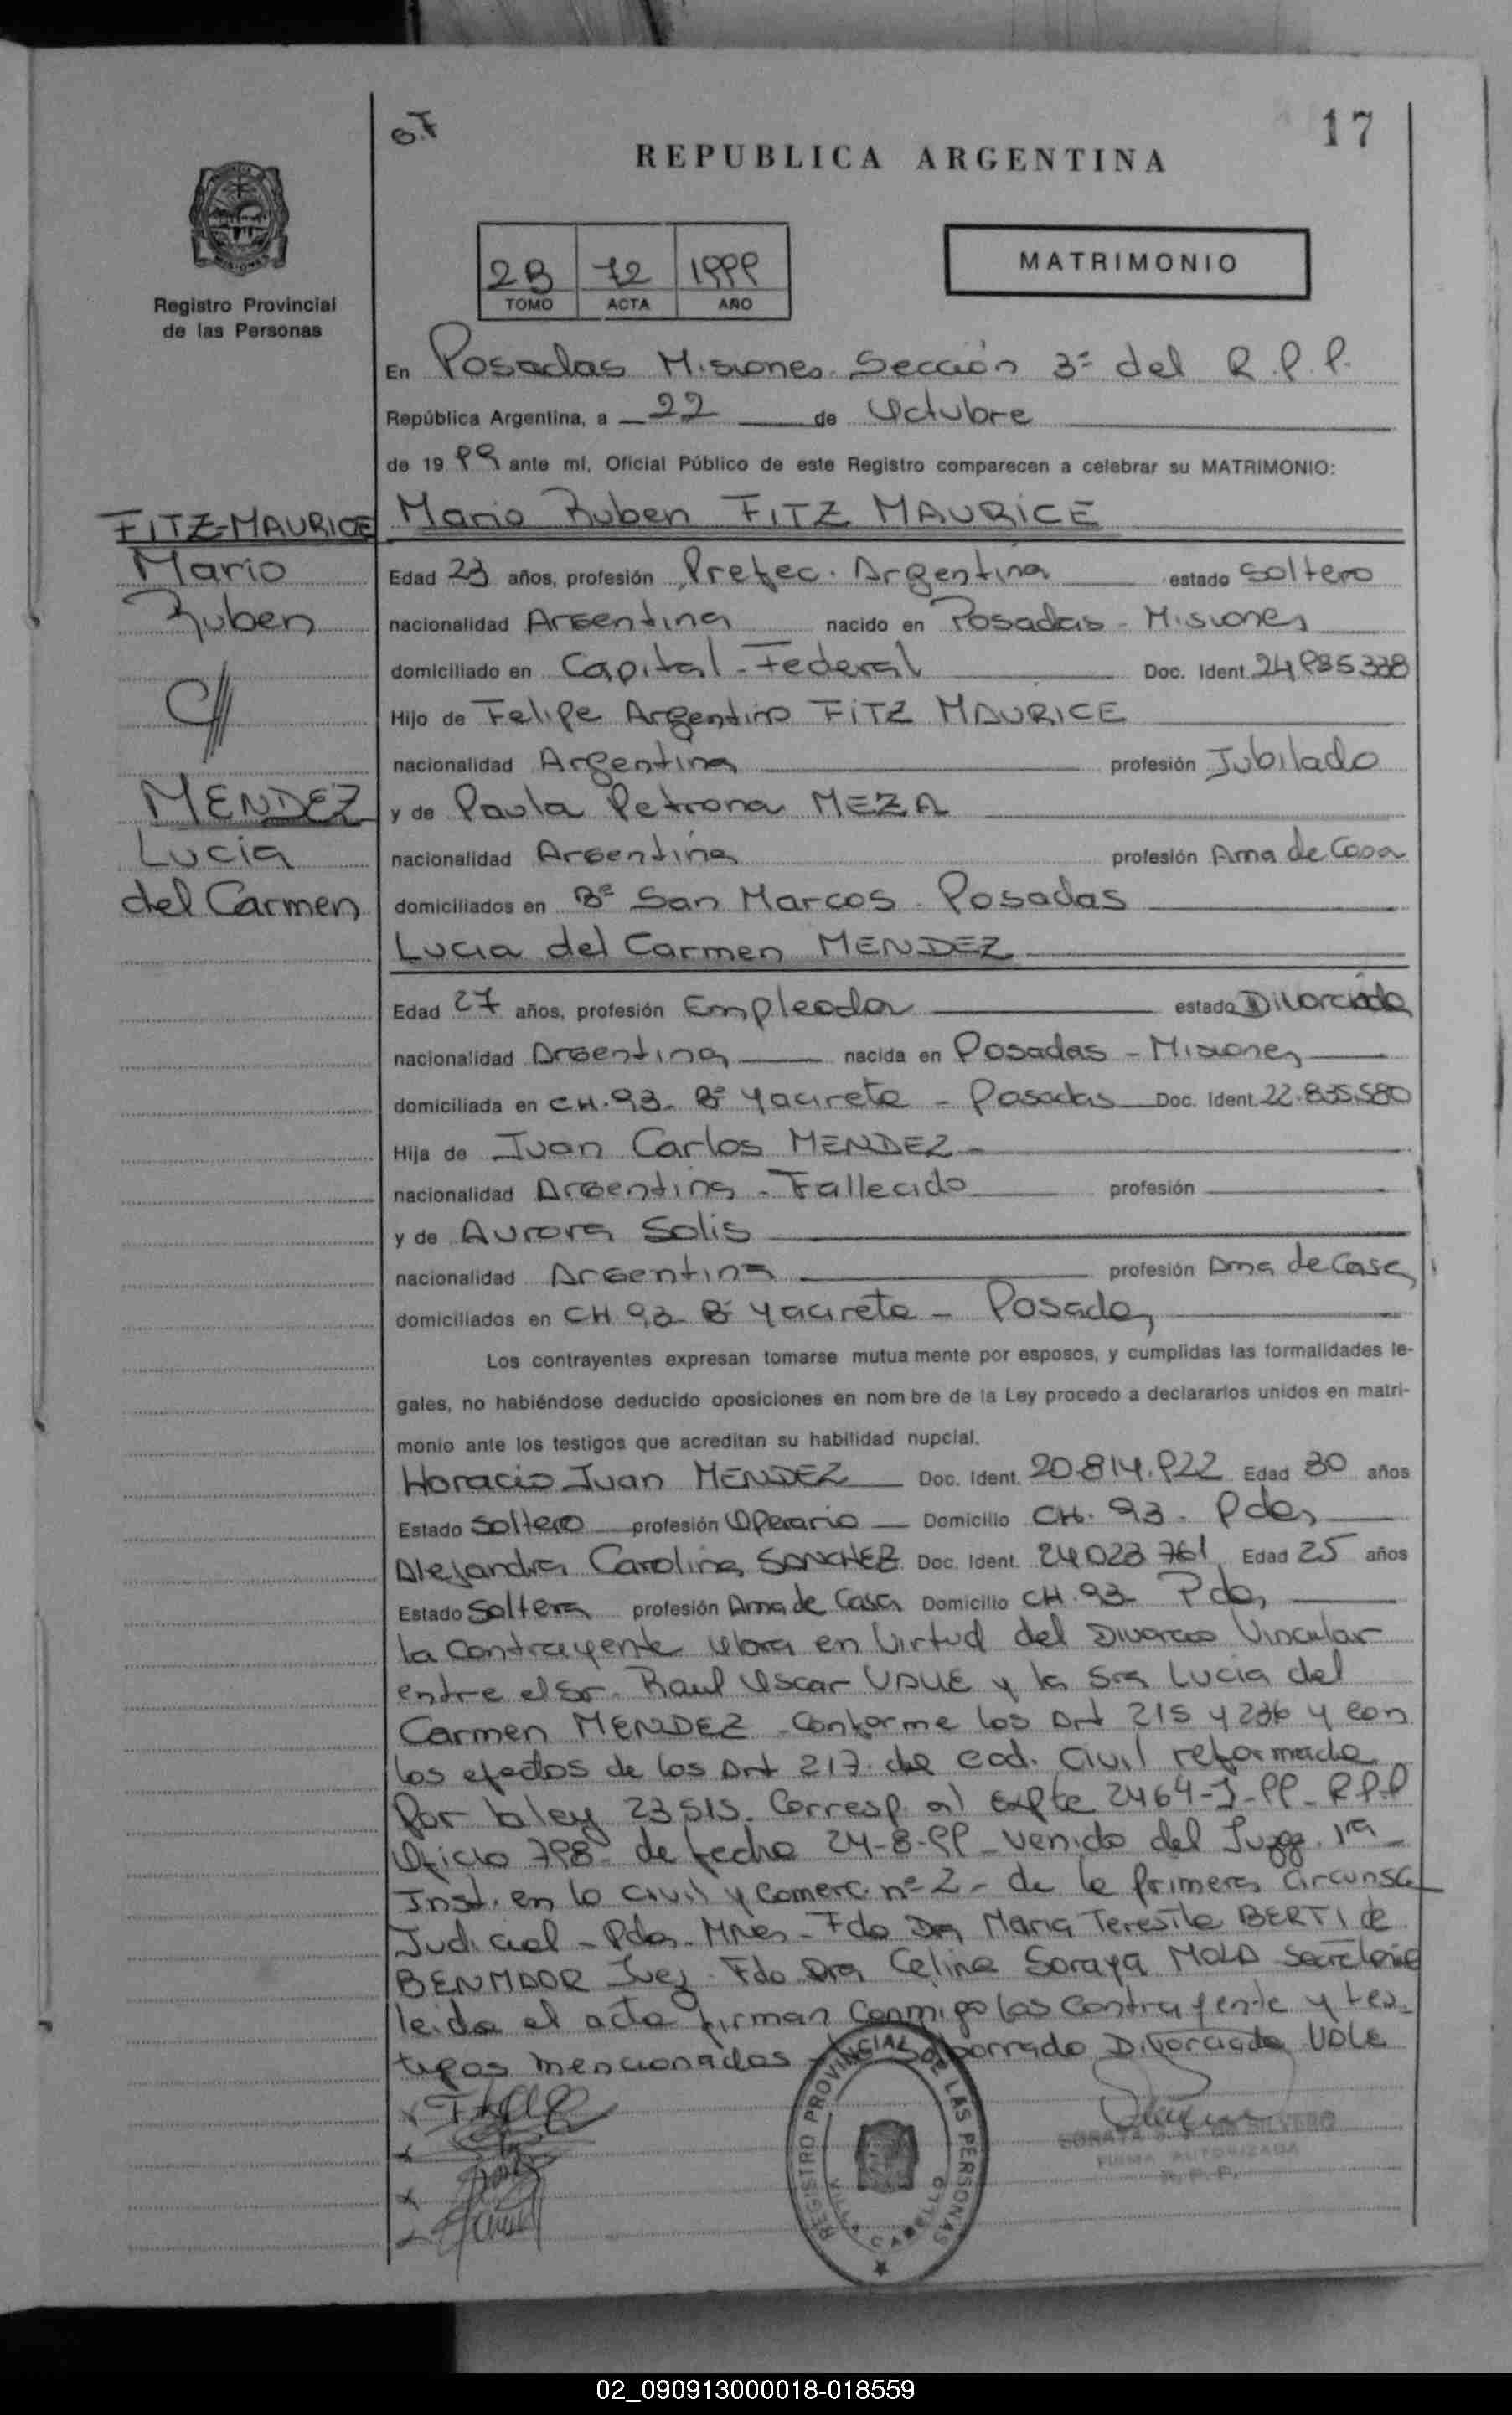 17
REPUBLICA ARGENTINA
Registro Provincial
de las Personas
2B 72 1999
TOMO ACTA AÑO
MATRIMONIO
En Posadas Misiones. Sección 3ª del R.P.P.
República Argentina, a 22 de Octubre
de 1999 ante mí, Oficial Público de este Registro comparecen a celebrar su MATRIMONIO:
FITZ-MAURICE
Mario
Ruben
C//
MENDEZ
Lucia
del Carmen
Mario Ruben FITZ MAURICE
Edad 23 años, profesión Prefec. Argentina estado Soltero
nacionalidad Argentina nacido en Posadas - Misiones
domiciliado en Capital-Federal Doc. Ident. 24.985.338
Hijo de Felipe Argentino FITZ MAURICE
nacionalidad Argentina profesión Jubilado
y de Paula Petrona MEZA
nacionalidad Argentina profesión Ama de Casa
domiciliados en Bº San Marcos - Posadas
Lucia del Carmen MENDEZ
Edad 27 años, profesión Empleada estado Divorciada
nacionalidad Argentina nacida en Posadas - Misiones
domiciliada en CH.93. Bº Yacireta - Posadas Doc. Ident. 22.835.580
Hija de Juan Carlos MENDEZ
nacionalidad Argentina - Fallecido profesión
y de Aurora Solis
nacionalidad Argentina profesión Ama de Casa
domiciliados en CH.93 Bº Yacireta - Posadas
Los contrayentes expresan tomarse mutua mente por esposos, y cumplidas las formalidades le-
gales, no habiéndose deducido oposiciones en nom bre de la Ley procedo a declararlos unidos en matri-
monio ante los testigos que acreditan su habilidad nupcial.
Horacio Juan MENDEZ Doc. Ident. 20.814.922 Edad 30 años
Estado Soltero profesión Operario Domicilio CH. 93. Pdas
Alejandra Carolina SANCHEZ Doc. Ident. 24023761 Edad 25 años
Estado Soltera profesión Ama de Casa Domicilio CH.93 Pdas
La Contrayente en Virtud del Divorcio Vincular
entre el Sr. Raul Oscar y la Sra Lucia del
Carmen MENDEZ - Conforme los Art 215 y 236 y con
los efectos de los Art 217. del cod. Civil reformado
Por la ley 23515. Corresp. al Expte 2464-J-99-R.P.P
Oficio 798- de fecha 24-8-99 - venido del Juzg. 1ra
Inst. en lo civil y Comerc. nº 2 - de la Primera Circunsc
Judicial - Pdas. Mnes - Fdo Dra Maria Teresita BERTI de
BENMAOR Juez. Fdo Dra Celina Soraya MOLA Secretaria
leida el acta firman conmigo los Contrayente y tes-
tigos mencionados - Sobrraado Divorciada
REGISTRO PROVINCIAL DE LAS PERSONAS
VILLA CABELLO
FIRMA AUTORIZADA
R.P.P.
02_090913000018-018559